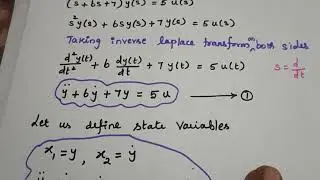 (s²+6s+7) y(s) = 5 u(s)
s² y(s) + 6s y(s) + 7 y(s) = 5 u(s)
Taking inverse laplace transform on both sides
d²y(t)/dt² + 6 dy(t)/dt + 7 y(t) = 5 u(t)
s = d/dt
ÿ + 6ẏ + 7y = 5 u → ①
Let us define state variables
x₁ = y, x₂ = ẏ